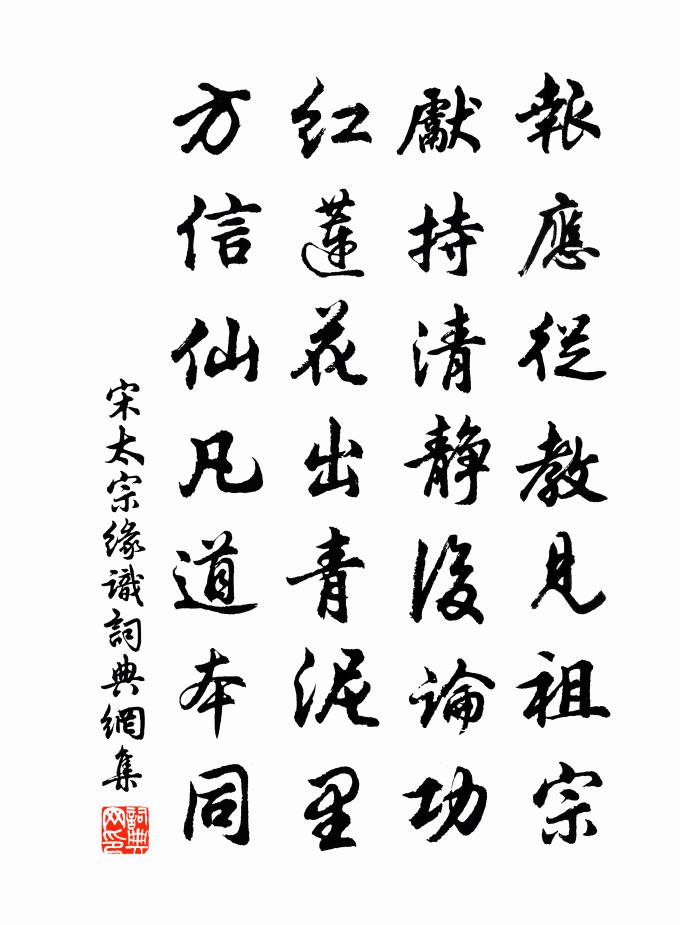 報應從教見祖宗
獻持清靜後論功
紅蓮花出青泥里
方信仙凡道本同
宋太宗緣識詞典網集
詞典网印